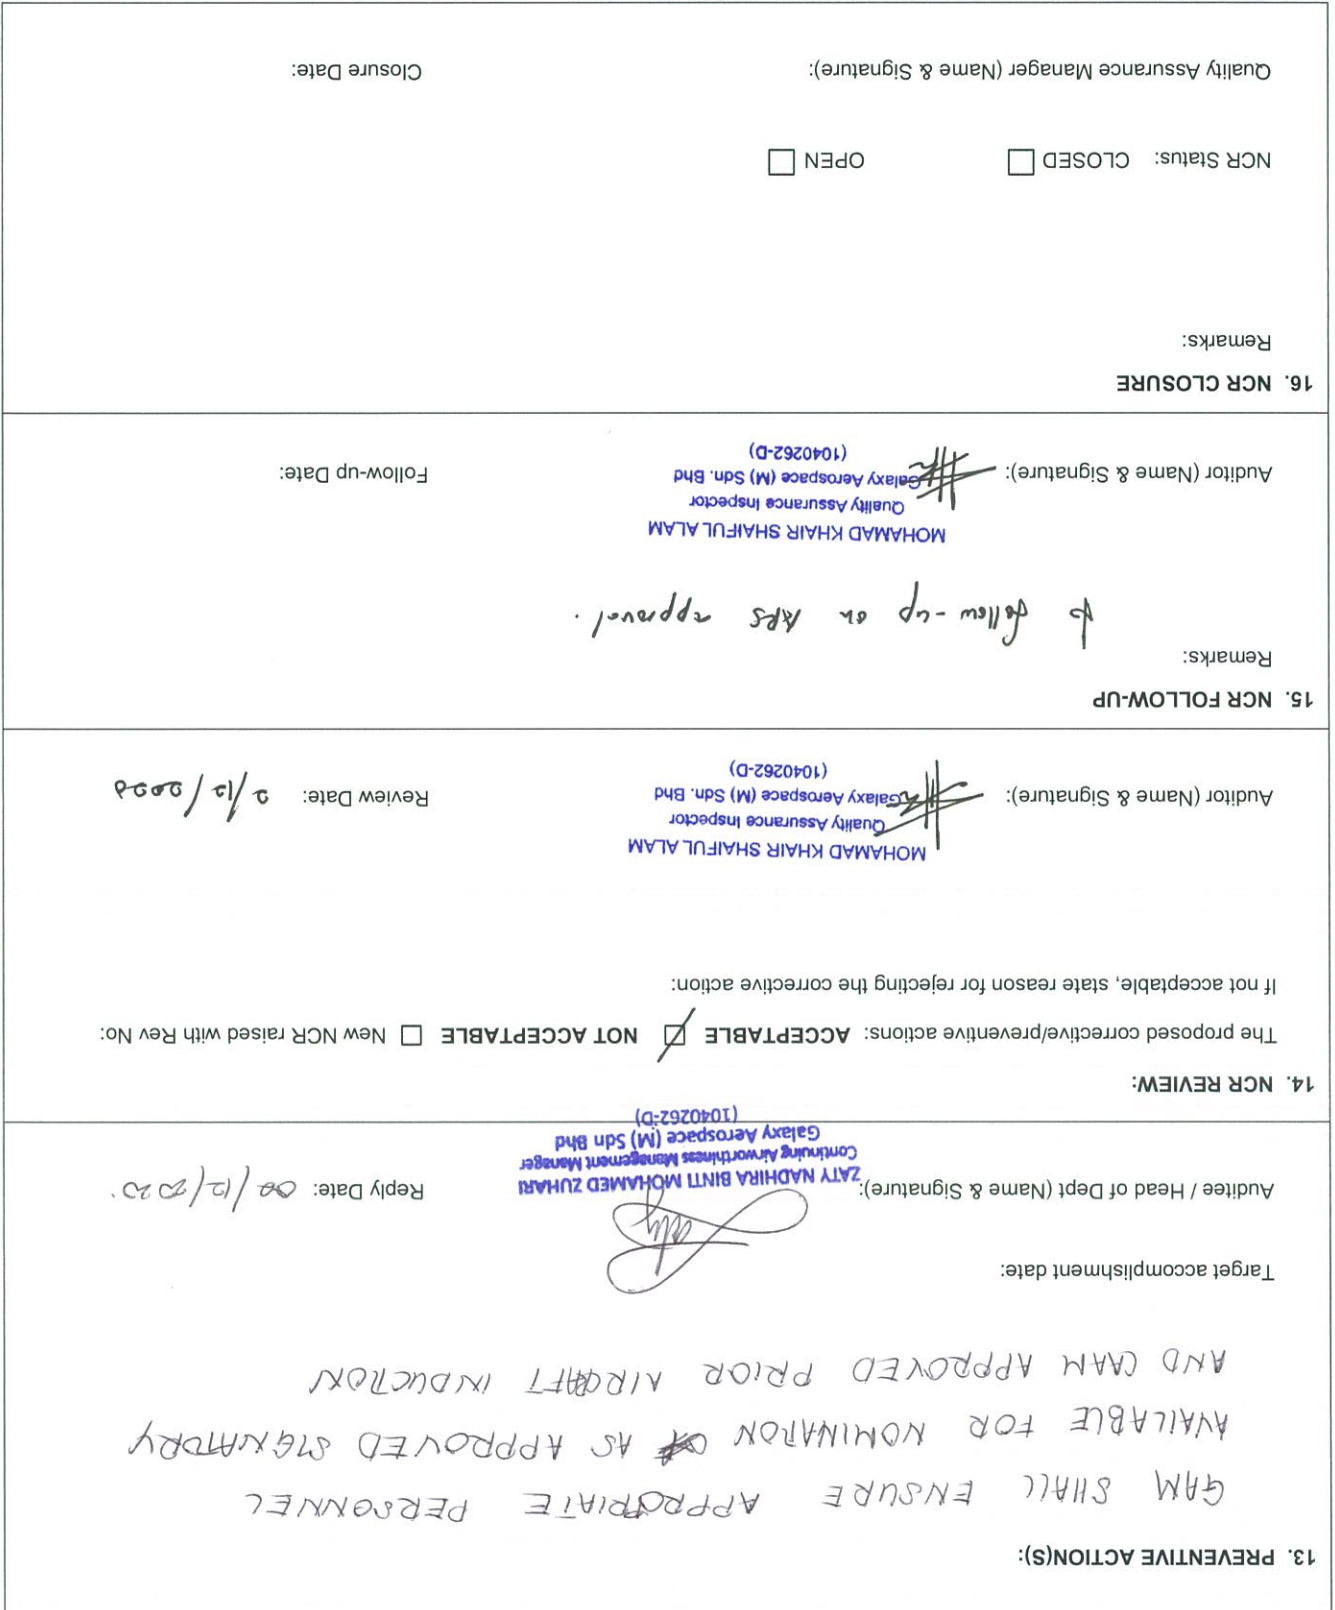 13. PREVENTIVE ACTION(S):
GAM SHALL ENSURE APPROPRIATE PERSONNEL
AVAILABLE FOR NOMINATION AS APPROVED SIGNATORY
AND CAAM APPROVED PRIOR AIRCRAFT INDUCTION
Target accomplishment date:
Auditee / Head of Dept (Name & Signature):
ZATY NADHIRA BINTI MOHAMED ZUHARI
Continuing Airworthiness Management Manager
Galaxy Aerospace (M) Sdn Bhd
(1040262-D)
Reply Date: 02/12/2020.
14. NCR REVIEW:
The proposed corrective/preventive actions: ACCEPTABLE NOT ACCEPTABLE New NCR raised with Rev No:
If not acceptable, state reason for rejecting the corrective action:
MOHAMAD KHAIR SHAIFUL ALAM
Quality Assurance Inspector
Galaxy Aerospace (M) Sdn. Bhd
(1040262-D)
Auditor (Name & Signature):
Review Date: 2/12/2020
15. NCR FOLLOW-UP
Remarks:
to follow-up on ARS approval.
MOHAMAD KHAIR SHAIFUL ALAM
Quality Assurance Inspector
Galaxy Aerospace (M) Sdn. Bhd
(1040262-D)
Auditor (Name & Signature):
Follow-up Date:
16. NCR CLOSURE
Remarks:
NCR Status: CLOSED OPEN
Quality Assurance Manager (Name & Signature):
Closure Date: